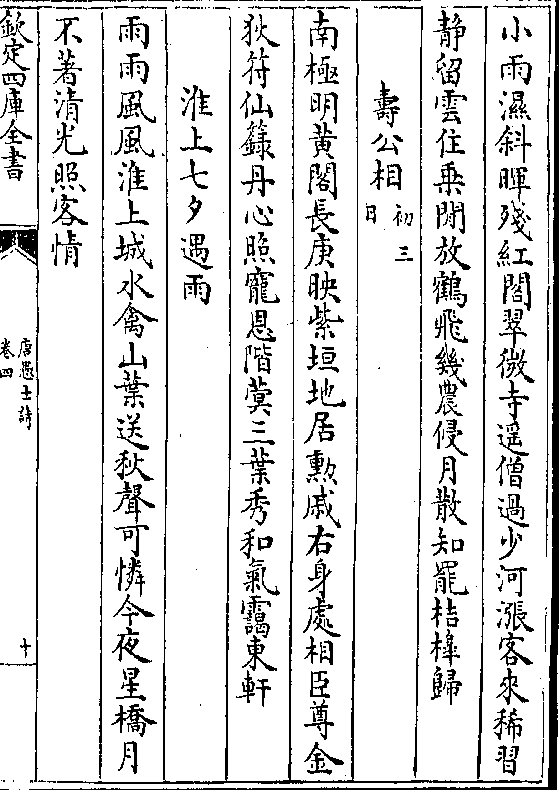 小雨濕斜暉殘紅閣翠微寺遥僧過少河漲客來稀習
静留雲住乗閒放鶴飛幾農侵月散知罷桔橰歸
壽公相初三日
南極明黄閣長庚映紫垣地居勲戚右身處相臣尊金
狄符仙籙丹心照寵恩階蓂三葉秀和氣靄東軒
淮上七夕遇雨
雨雨風風淮上城水禽山葉送秋聲可憐今夜星橋月
不著清光照客情
欽定四庫全書
唐愚士詩
卷四
十